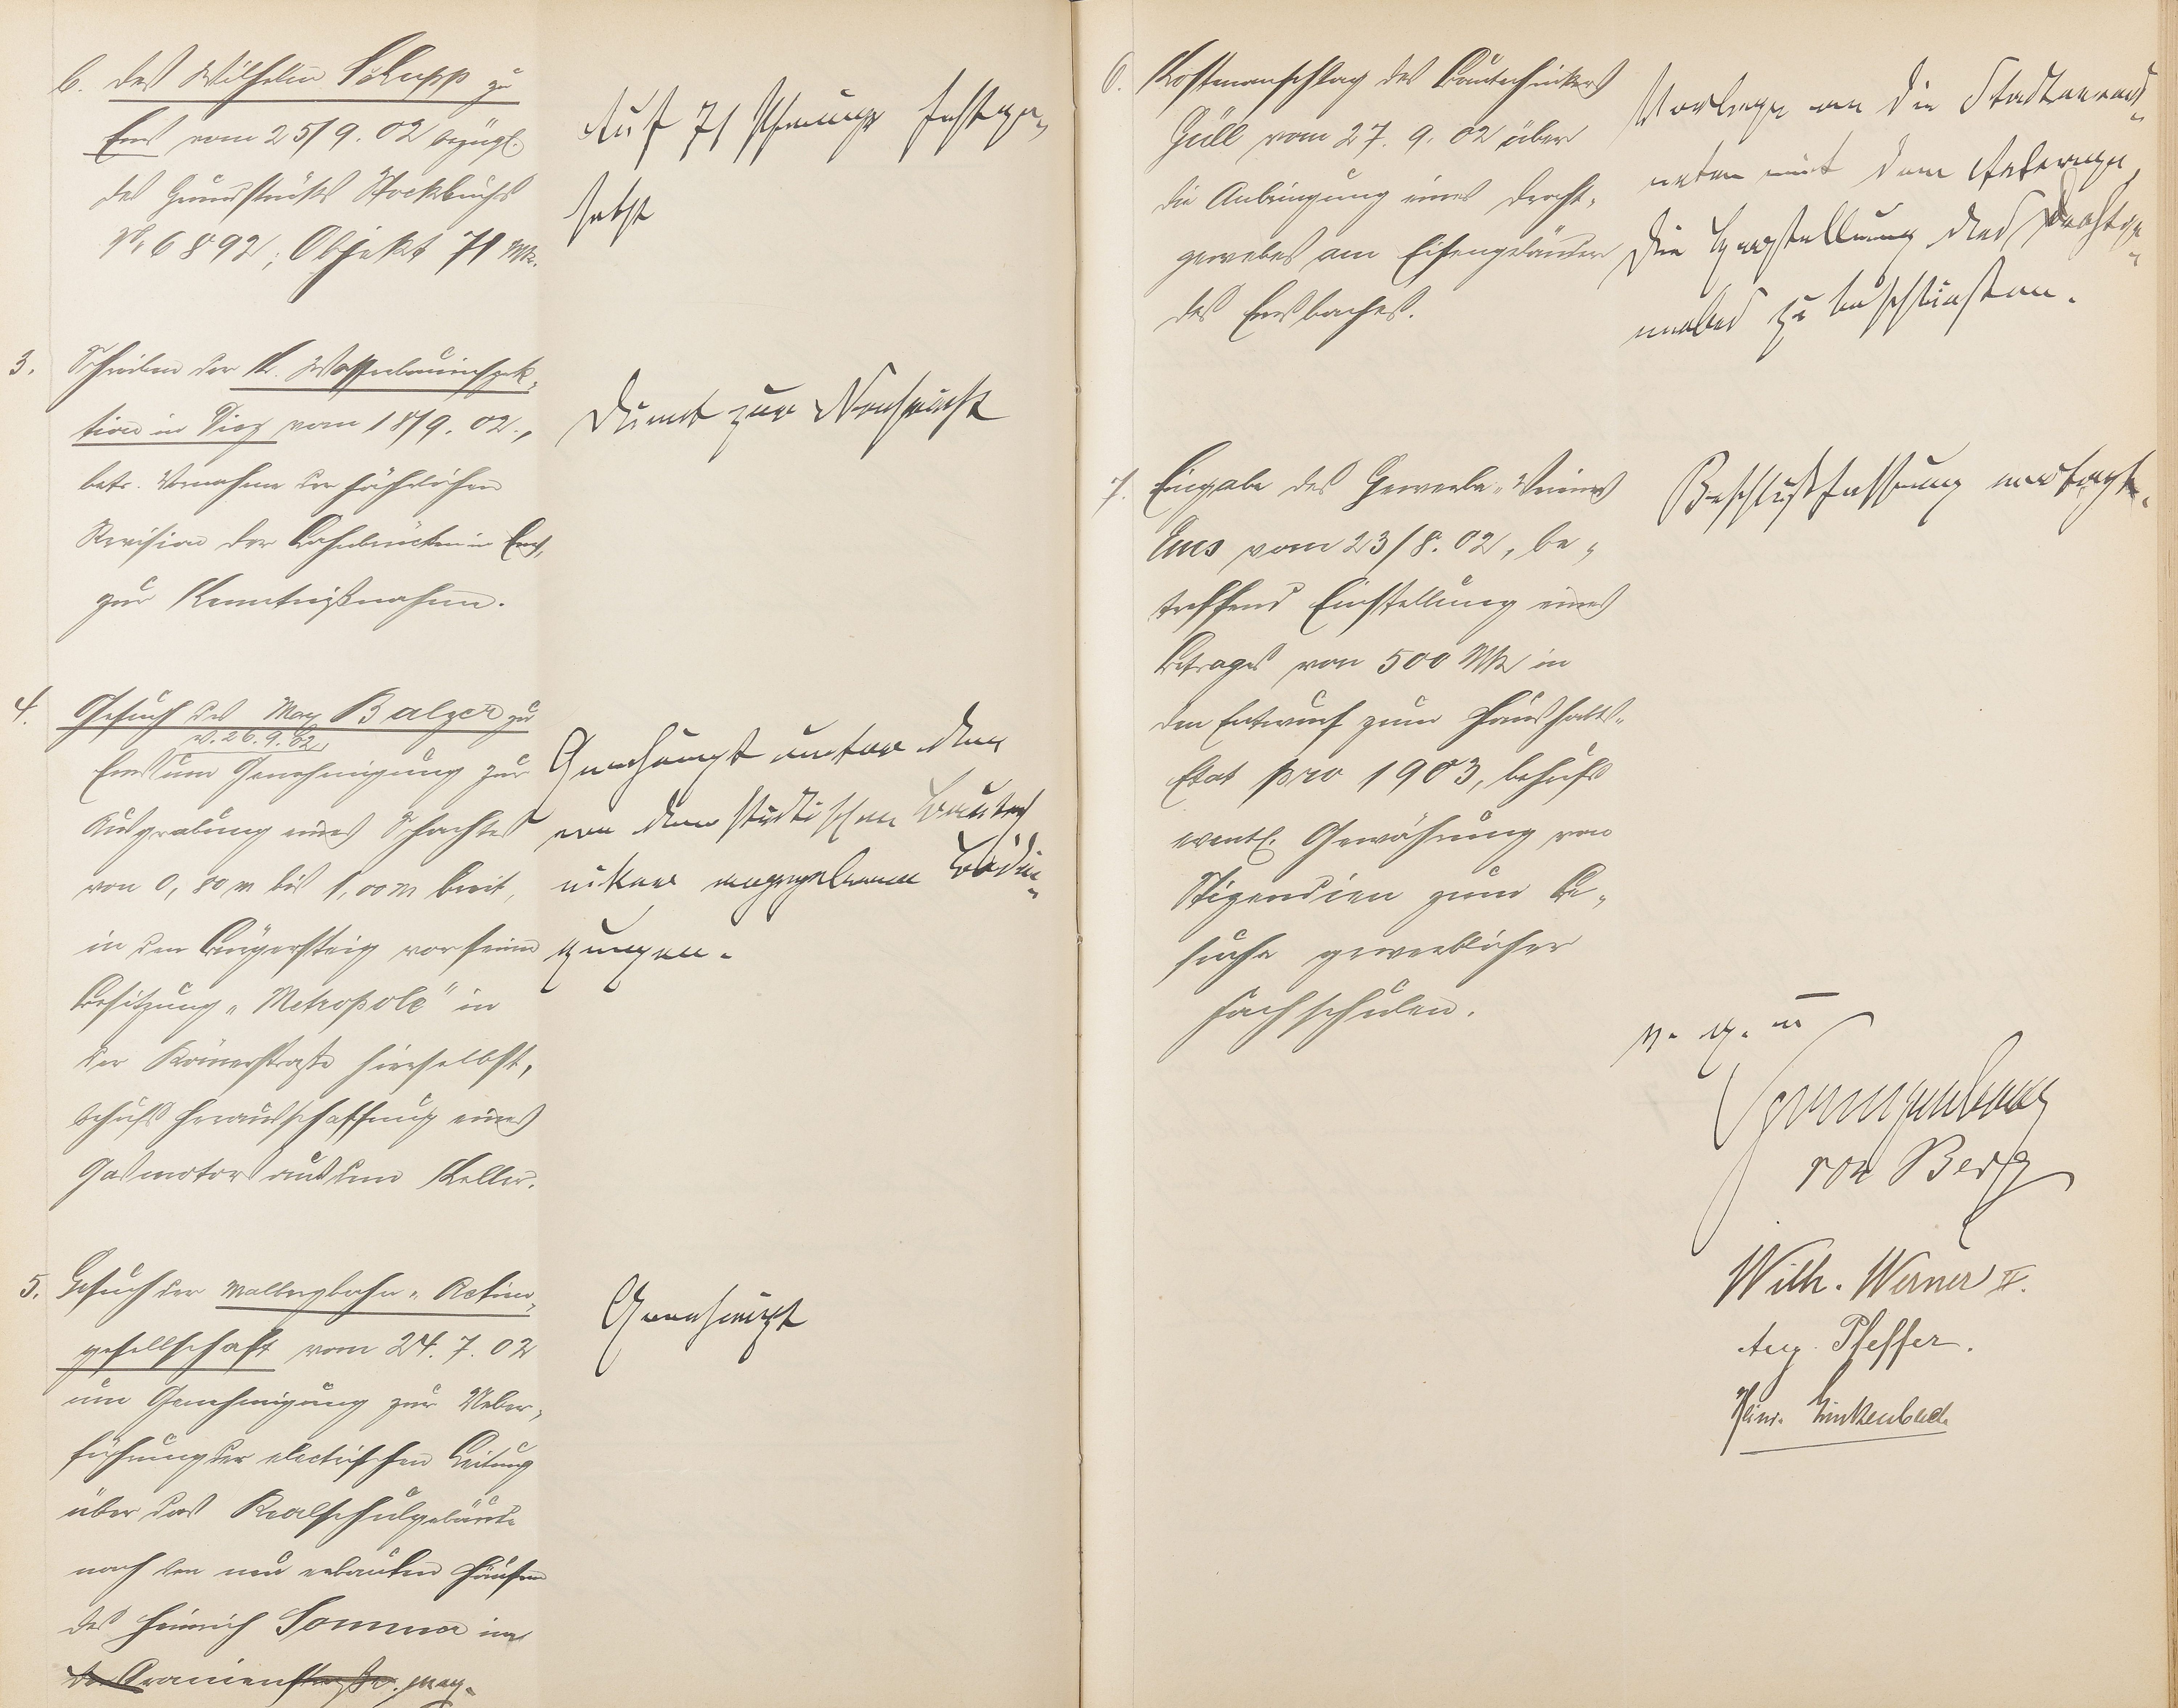 b. des Wilhelm Schupp zu
Ems vom 25/9. 02 bezügl.
des Grundstücks Stockbuchs
No 6892; Objekt 71 Mk.
Auf 71 Pfennige festge-
setzt
3. Schreiben der K. Wasserbauinspek-
tion in Diez vom 18/9. 02.,
betr. Vornahme der jährlichen
Revision der Lahnbrücken in Ems,
zur Kenntnißnahme.
Dient zur Nachricht
4. Gesuch des Max Balzer zu
v. 26.9.02
Ems um Genehmigung zur
Ausgrabung eines Schachtes
von 0,80 m bis 1,00 m breit,
in dem Bürgersteig vor seiner
Besitzung „Metropole" in
der Römerstraße hierselbst,
behufs Herausschaffung eines
Gasmotors aus dem Keller.
Genehmigt unter den
von dem städtischen Bautech
niker angegebenen Bedin-
gungen.
5. Gesuch der Malbergbahn-Actien-
gesellschaft vom 24.7.02
um Genehmigung zur Ueber-
führung der electrischen Leitung
über das Realschulgebäude
nach den neu erbauten Häusern
des Heinrich Sommer in
der Oranienstraße.
Genehmigt
6. Kostenanschlag des Bautechnikers
Güll vom 27. 9. 02 über
die Anbringung eines Draht-
gewebes am Eisengeländer
des Emsbaches.
Vorlage an die Stadtverord-
neten mit dem Antrage,
die Herstellung des Drahtge-
webes zu beschließen.
7. Eingabe des Gewerbe-Vereins
Ems vom 23/8. 02, be-
treffend Einstellung eines
Betrages von 500 Mk in
den Entwurf zum Haushalts-
Etat pro 1903, behufs
eventl. Gewährung von
Stipendien zum Be-
suche gewerblicher
Fachschulen.
Beschlußfassung vertagt.
v. g. u.
Spangenberg
von Berg
Wilh. Werner II.
Aug. Pfeffer.
Heinr. Linkenbach